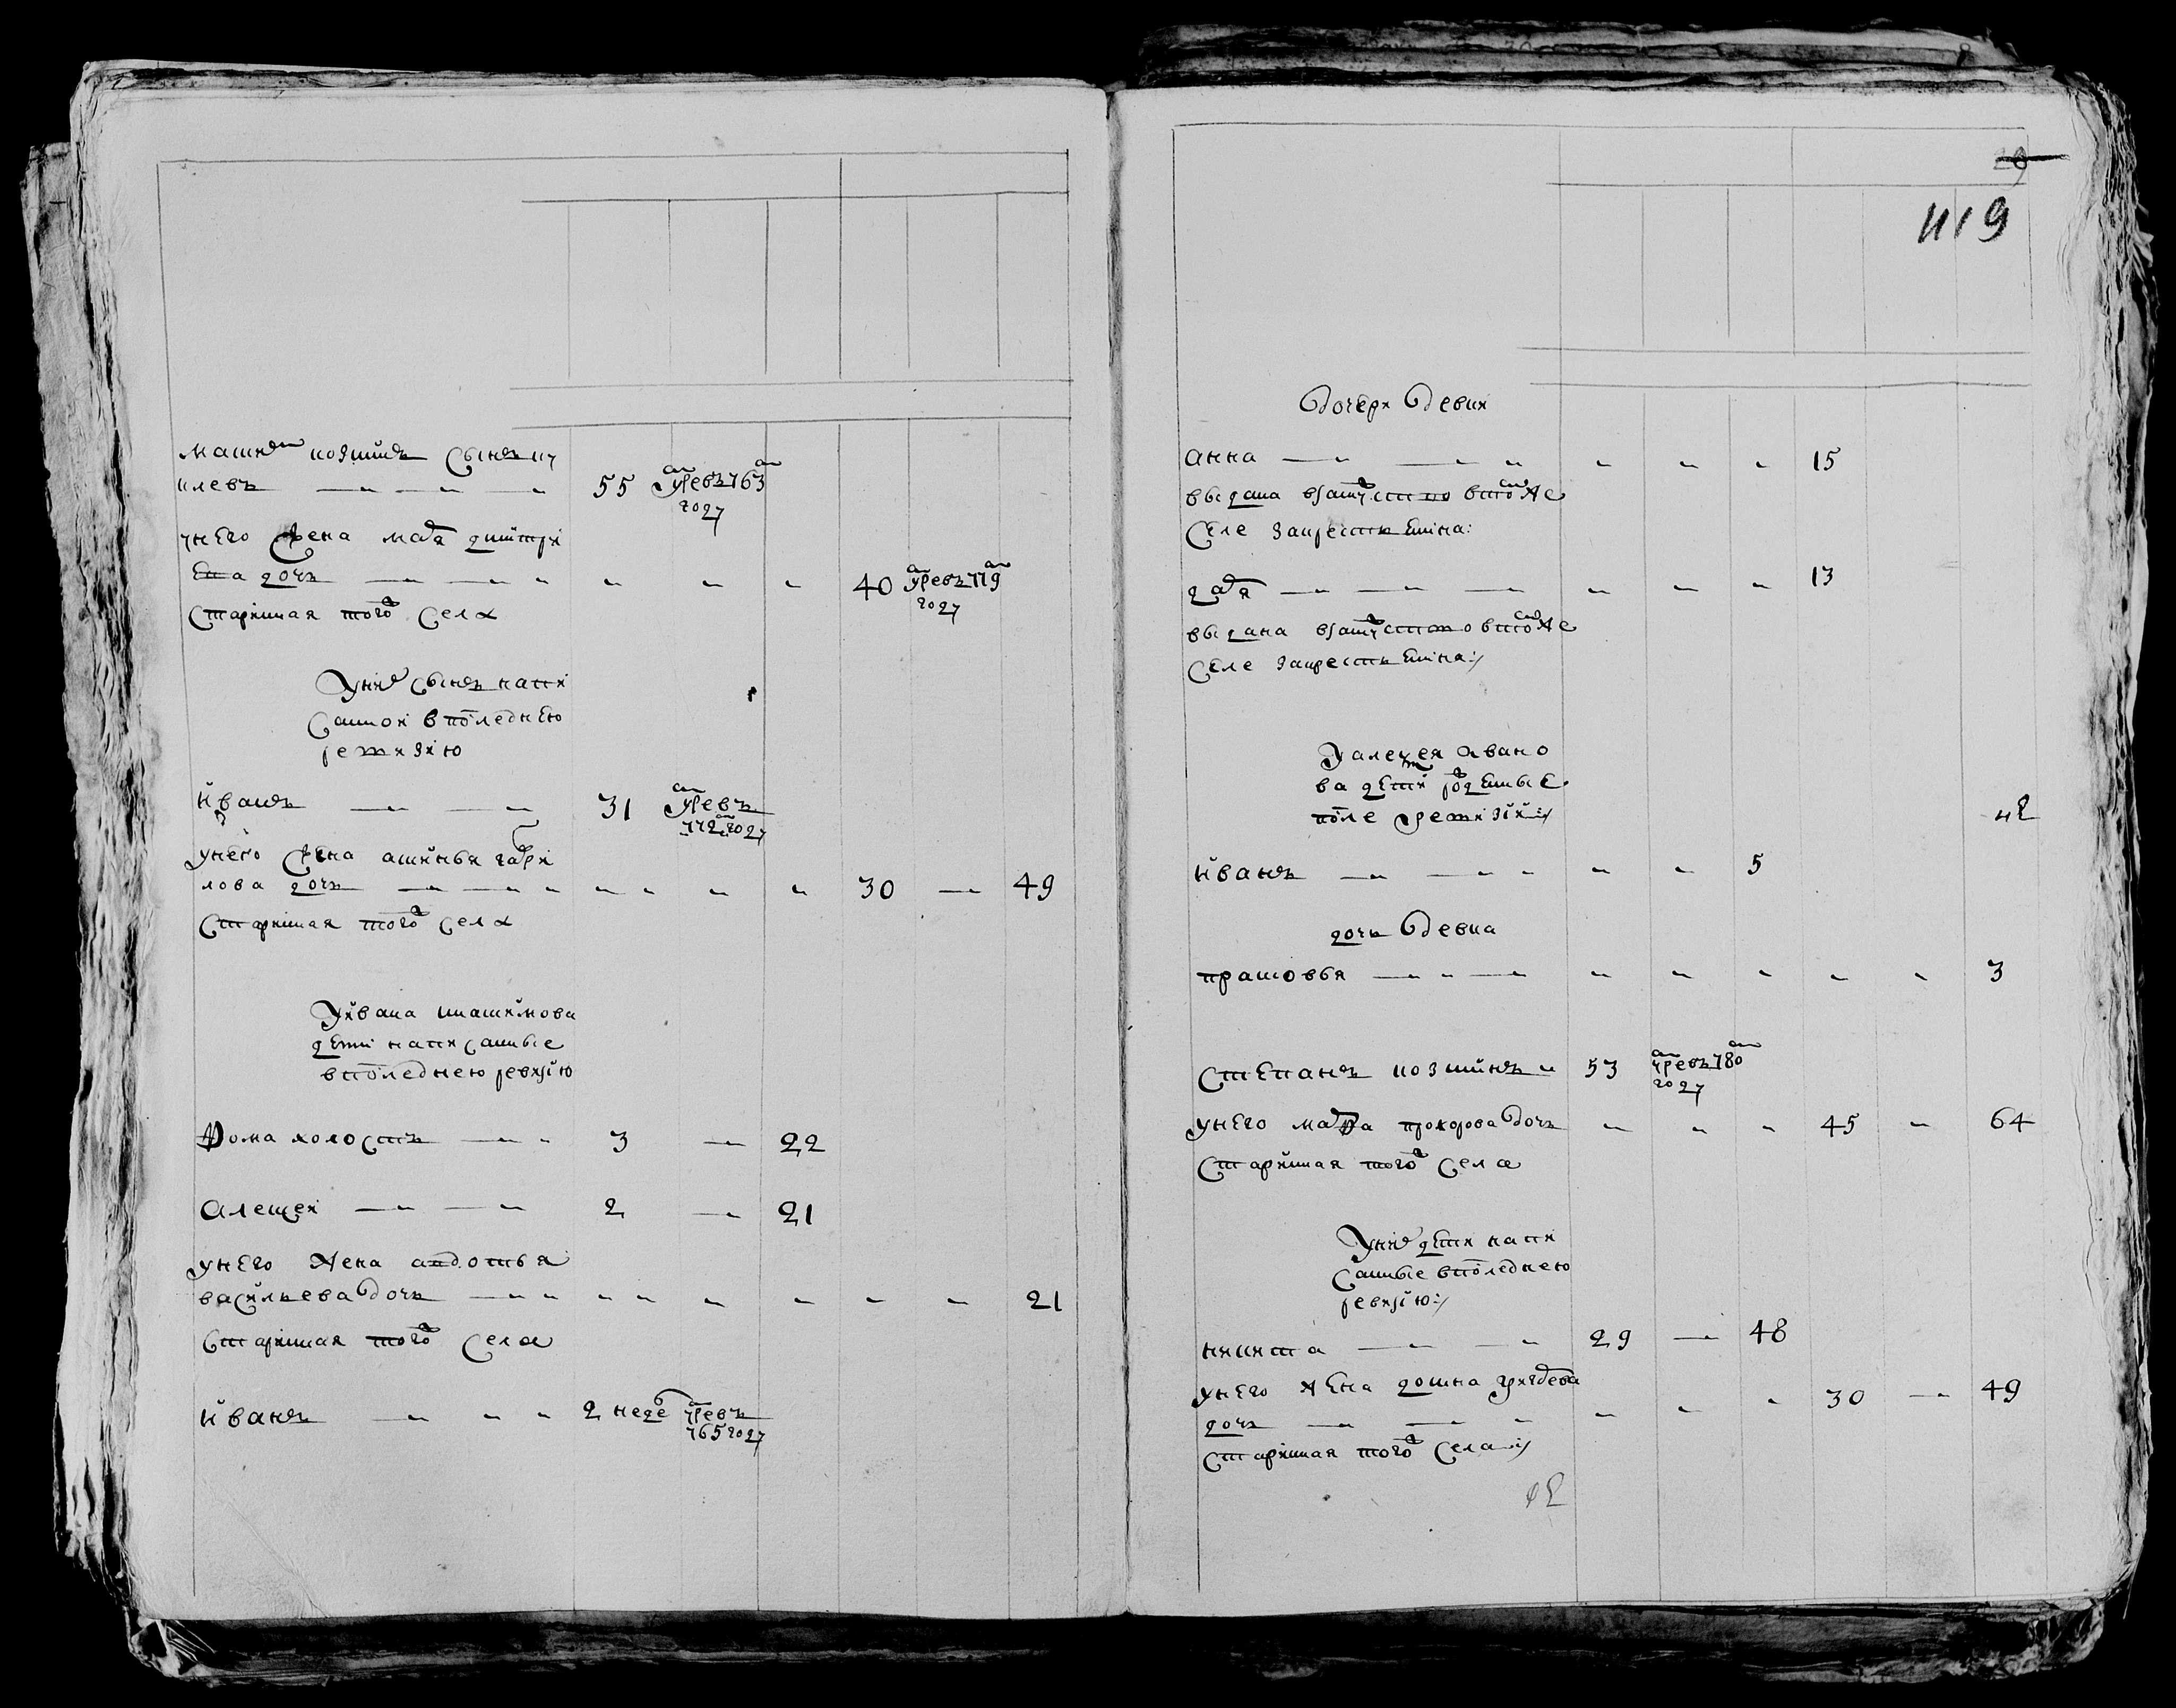 55 умре въ 763
году
у него жена марья дмитри
ева дочь — — — 40 умре въ 779
году
старинная того села
У них сынъ напи
санои в последнею
ревизию
Иванъ — — 31 умре въ
772 году
у него жена аксинья гаври
лова дочь — — — 30 — 49
старинная того села
У ивана максимова
дети написанные
в последнею ревизию
Фома холостъ — — 3 — 22
алексеи — — 2 — 21
у него жена авдотья
васильева дочь — — 21
старинная того села
Иванъ — 2 неде умре въ
765 году
29
119
дочери девки
анна — — — 15
выдана в замужество в том же
селе за крестьянина
дарья — — — 13
выдана в замужество в том же
селе за крестьянина:
У алексея ивано
ва дети рожденные
после ревизии:
иванъ — — 5
дочь девка
прасковья — — — 3
Степанъ козминъ 53 умре въ 780
году
у него марфа прохорова дочь 45 — 64
старинная того села
У них дети напи
санные в последнею
ревизию:
никита — — 29 — 48
у него жена домна
дочь — — 30 — 49
старинная того села: